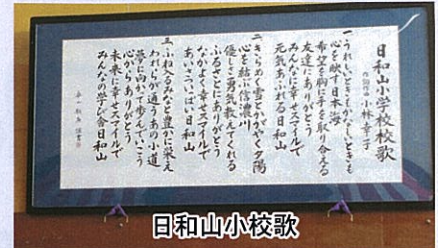 日和山小学校校歌
作詞作曲 小林幸子
一 うれしいときもかなしいときも
心を映す日本海
希望を胸に手を取り合える
友達にありがとう
みんなに幸せスマイルで
元気あふれる日和山
二 きらめく雪とかがやく夕陽
心を結ぶ信濃川
優しさ勇気教えてくれる
ふるさとにありがとう
なかよく幸せスマイルで
あいさついっぱい日和山
三 ふね入るみなと豊かに栄え
われらが通うおけさ小道
夢に向かって歩いていこう
心からありがとう
未来に幸せスマイルで
みんなの学び舎日和山
日和山小校歌